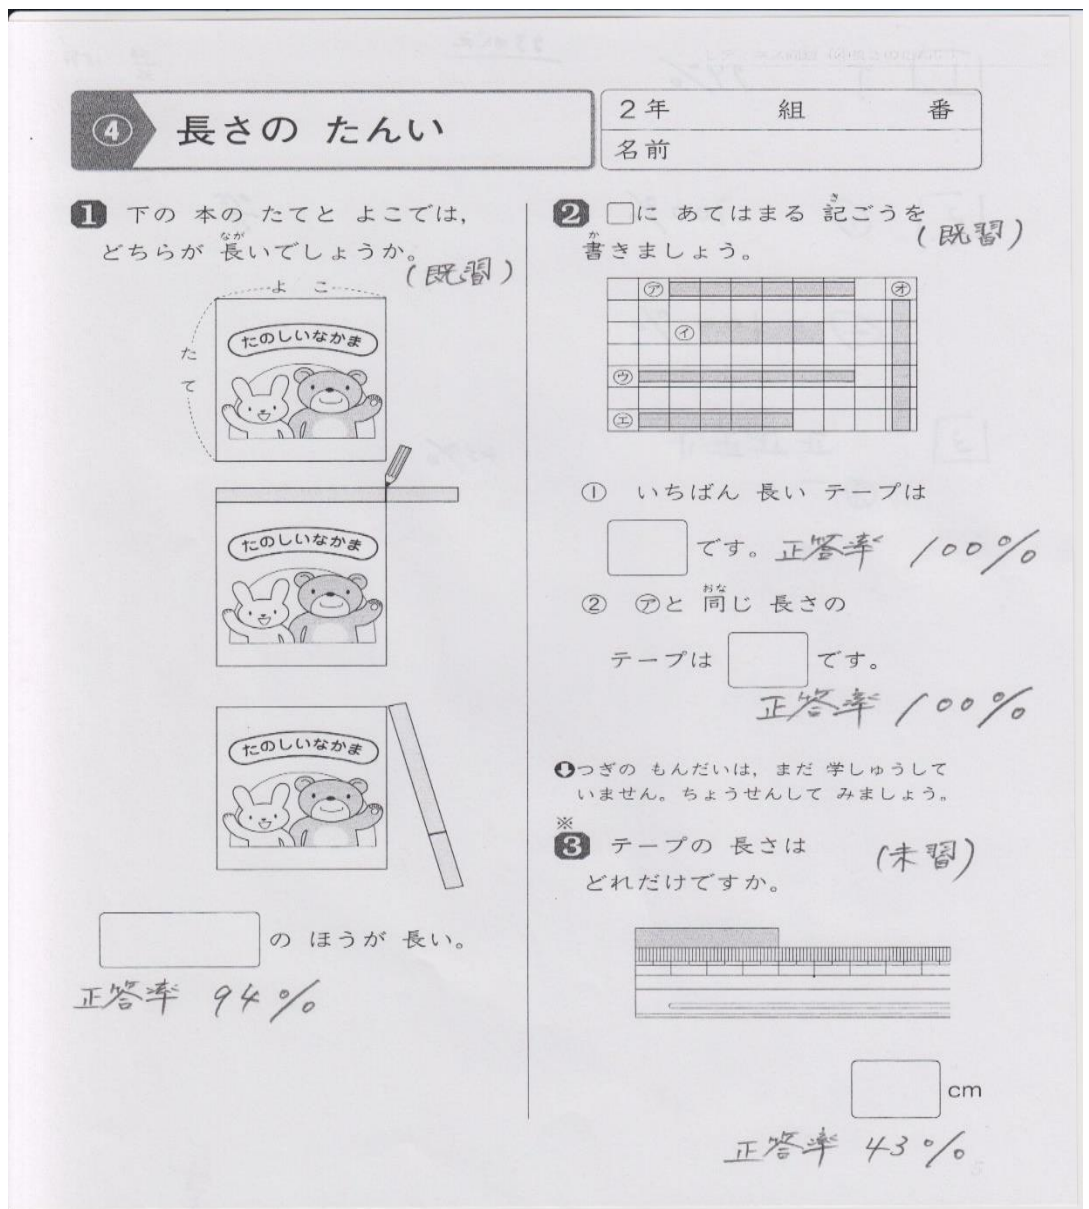 ④ 長さの たんい
2年 組 番
名前
1 下の 本の たてと よこでは,
どちらが 長いでしょうか。
なが
(既習)
よこ
たて
たのしいなかま
たのしいなかま
たのしいなかま
の ほうが 長い。
正答率 94%
2 □に あてはまる 記ごうを
き
書きましょう。
か
(既習)
㋐ ㋔
㋑
㋒
㋓
① いちばん 長い テープは
です。 正答率 100%
② ㋐と 同じ 長さの
おな
テープは です。
正答率 100%
つぎの もんだいは, まだ 学しゅうして
いません。ちょうせんして みましょう。
※
3 テープの 長さは
どれだけですか。
(未習)
cm
正答率 43%